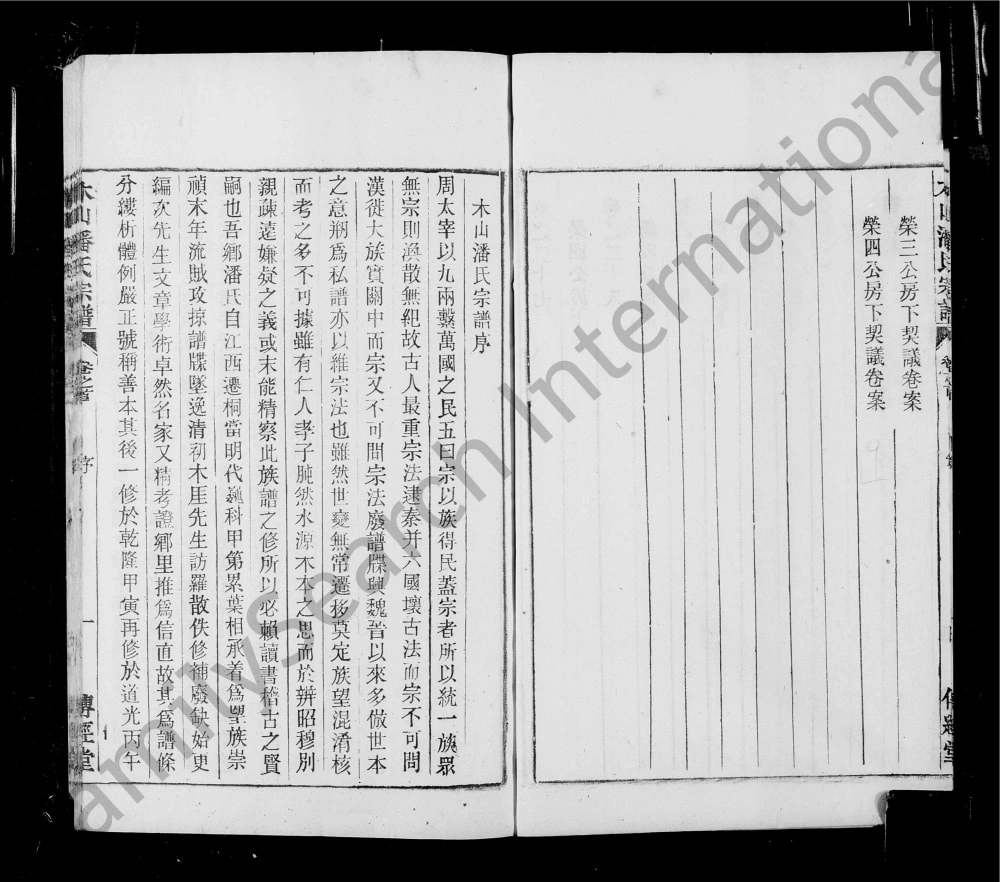 榮三公房下契議卷案
榮四公房下契議卷案
木山潘氏宗譜序
周太宰以九兩繫萬國之民五曰宗以族得民蓋宗者所以統一族眾
無宗則渙散無紀故古人最重宗法逮秦并六國壞古法而宗不可問
漢徙大族實關中而宗又不可問宗法廢譜牒興魏晉以來多倣世本
之意剏為私譜亦以維宗法也雖然世變無常遷移莫定族望混淆核
而考之多不可據雖有仁人孝子肫然水源木本之思而於辨昭穆別
親疎遠嫌疑之義或未能精察此族譜之修所以必賴讀書稽古之賢
嗣也吾鄉潘氏自江西遷桐當明代巍科甲第累葉相承着為望族崇
禎末年流賊攻掠譜牒墜逸清初木厓先生訪羅散佚修補廢缺始更
編次先生文章學術卓然名家又精考證鄉里推為信直故其為譜條
分縷析體例嚴正號稱善本其後一修於乾隆甲寅再修於道光丙午
木山潘氏宗譜 卷之首 序 一 傳經堂
FamilySearch International